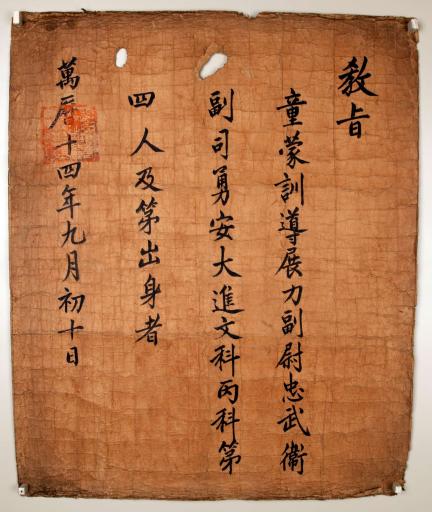 敎旨
童蒙訓導展力副尉忠武衛
副司勇安大進文科丙科第
四人及第出身者
萬曆十四年九月初十日